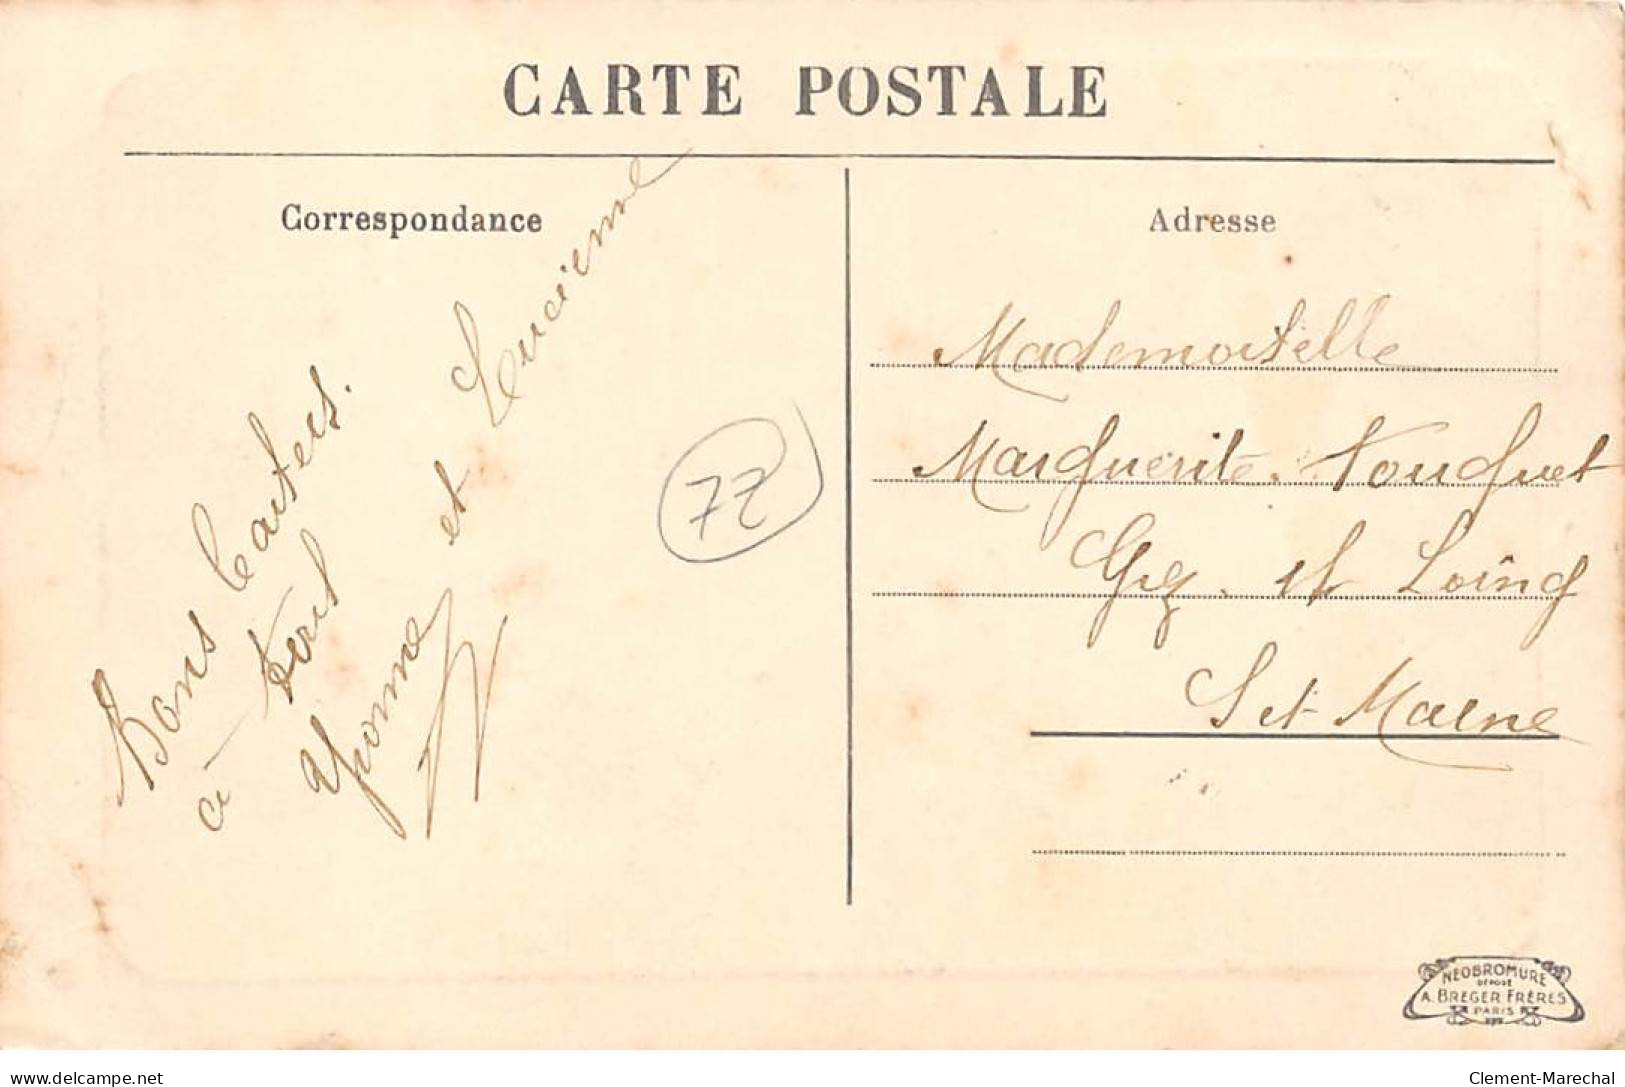 CARTE POSTALE
Correspondance
Bons baisers.
à
Yvonne et Lucienne
72
Adresse
Mademoiselle
Marguerite Fouquet
Grez St Loing
S et Marne
NEOBROMURE
DÉPOSÉ
A. BREGER FRÈRES
PARIS
delcampe.net
Clement-Marechal